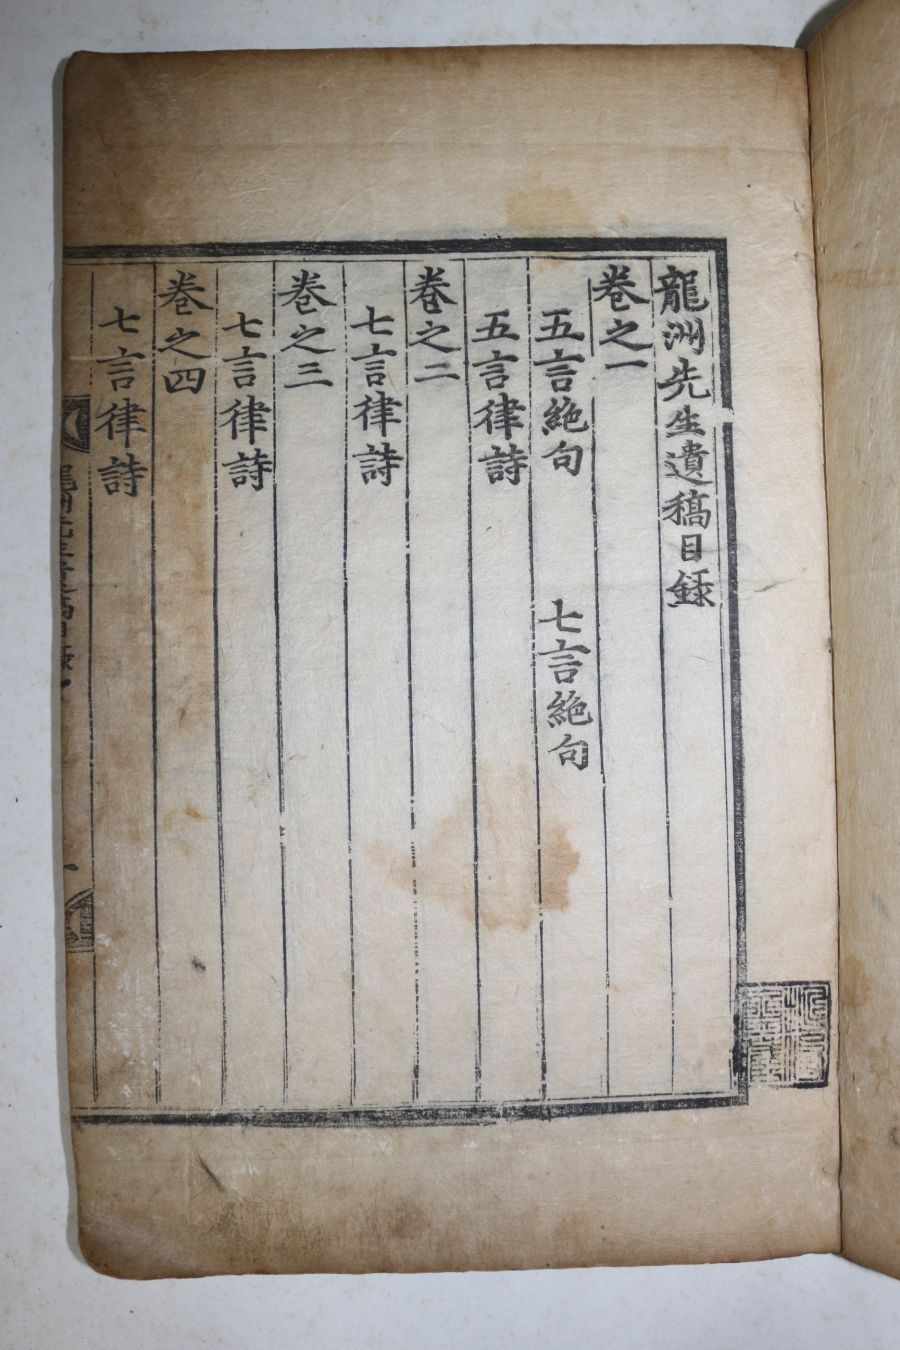 龍洲先生遺稿目録
卷之一
五言絶句 七言絶句
五言律詩
卷之二
七言律詩
卷之三
七言律詩
卷之四
七言律詩